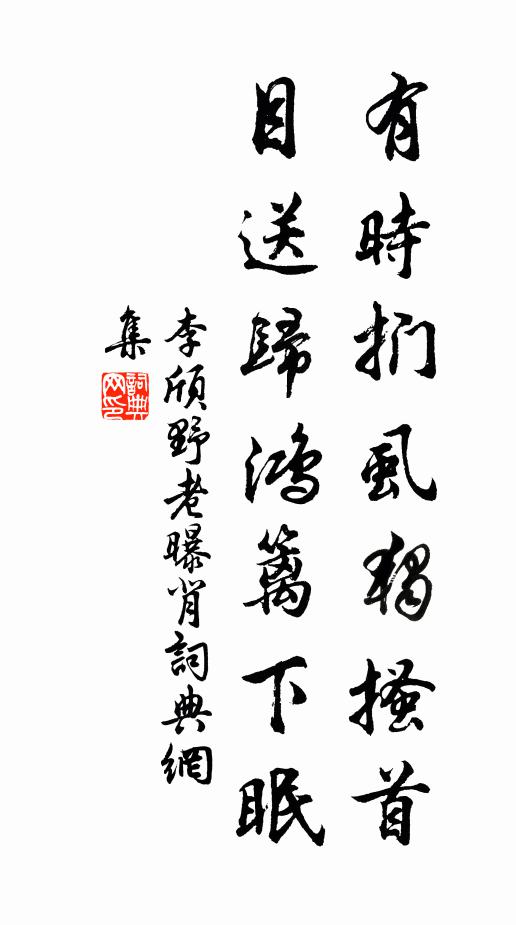 有時捫虱獨搔首
目送歸鴻籬下眠
李頎野老曝背詞典網
集
詞典网印